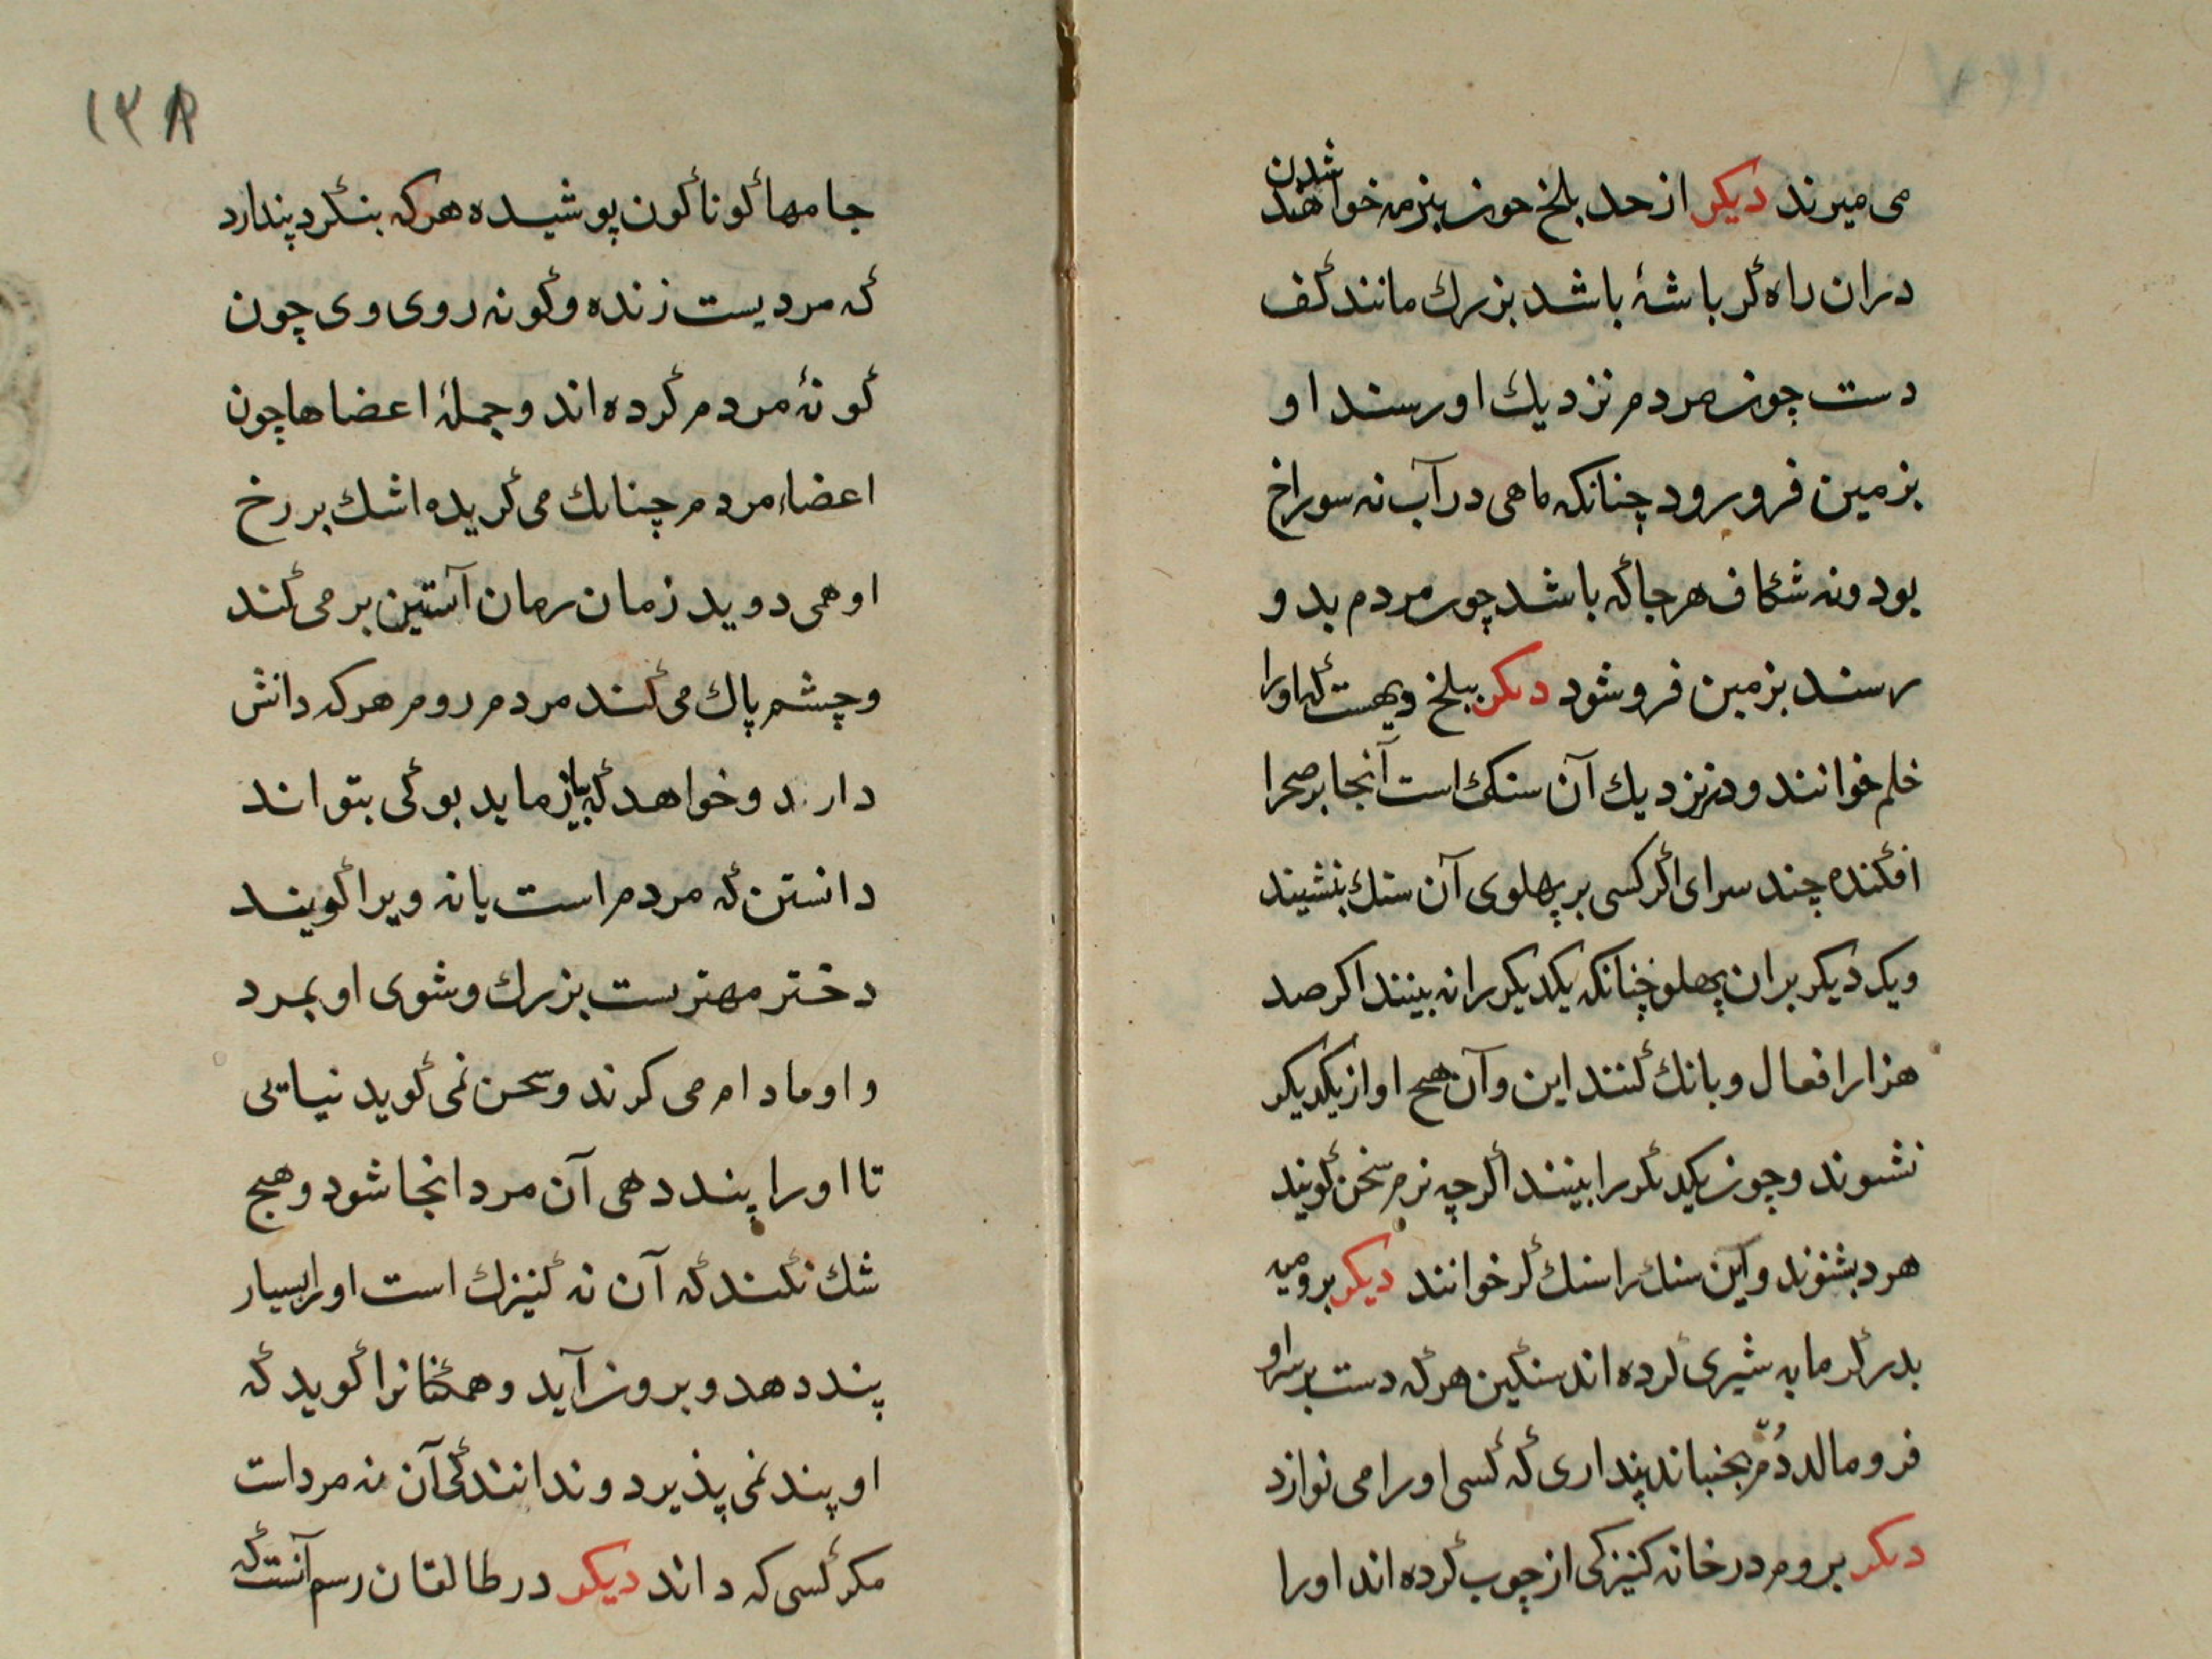 می میرند دیکر از حد بلخ چون بزمه خواهند شدن
دران راه کرباشهٔ باشد بزرك مانند کف
دست چون مردم نزدیك او رسند او
بزمین فرو رود چنانکه ماهی در آب نه سوراخ
بود و نه شکاف هرجا که باشد چون مردم بدو
رسند بزمین فرو شود دیکر ببلخ دیهست که او را
خلم خوانند و در نزدیك آن سنکی است آنجا بر صحرا
افکنده چند سرای اکر کسی بر پهلوی آن سنك بنشیند
ویکی دیکر بران پهلو چنانکه یکدیکر را نه بینند اکر صد
هزار افعال و بانك کنند این و آن هیچ اواز یکدیکر
نشنوند و چون یکدیکر را بینند اکر چه نرم سخن کویند
هر دو بشنوند و این سنك را سنك کر خوانند دیکر برومیه
بدر کرمابه شیری کرده اند سنکین هر که دست بر سر او
فرو مالد دُم بجنباند پنداری که کسی او را می نوازد
دیکر بروم در خانه کنیزکی از چوب کرده اند او را
۱۳۸
جامها کوناکون پوشیده هر که بنکرد پندارد
که مردیست زنده و کونه روی وی چون
کونهٔ مردم کرده اند و جملهٔ اعضاها چون
اعضاء مردم چنانك می کریده اشك بر رخ
او همی دوید زمان زمان آستین بر می کند
و چشم پاك می کند مردم روم هر که دانش
دارد و خواهد که بیازماید بو کی بتواند
دانستن که مردم است یا نه ویرا کویند
دختر مهتریست بزرك و شوی او بمرد
و او مادام می کرند و سخن نمی کوید نیایی
تا او را پند دهی آن مرد انجا شود و هیچ
شك نکند که آن نه کنیزك است او را بسیار
پند دهد و برون آید و همکنانرا کوید که
او پند نمی پذیرد و ندانند کی آن نه مرد است
مکر کسی که داند دیکر در طالقان رسم آنست که